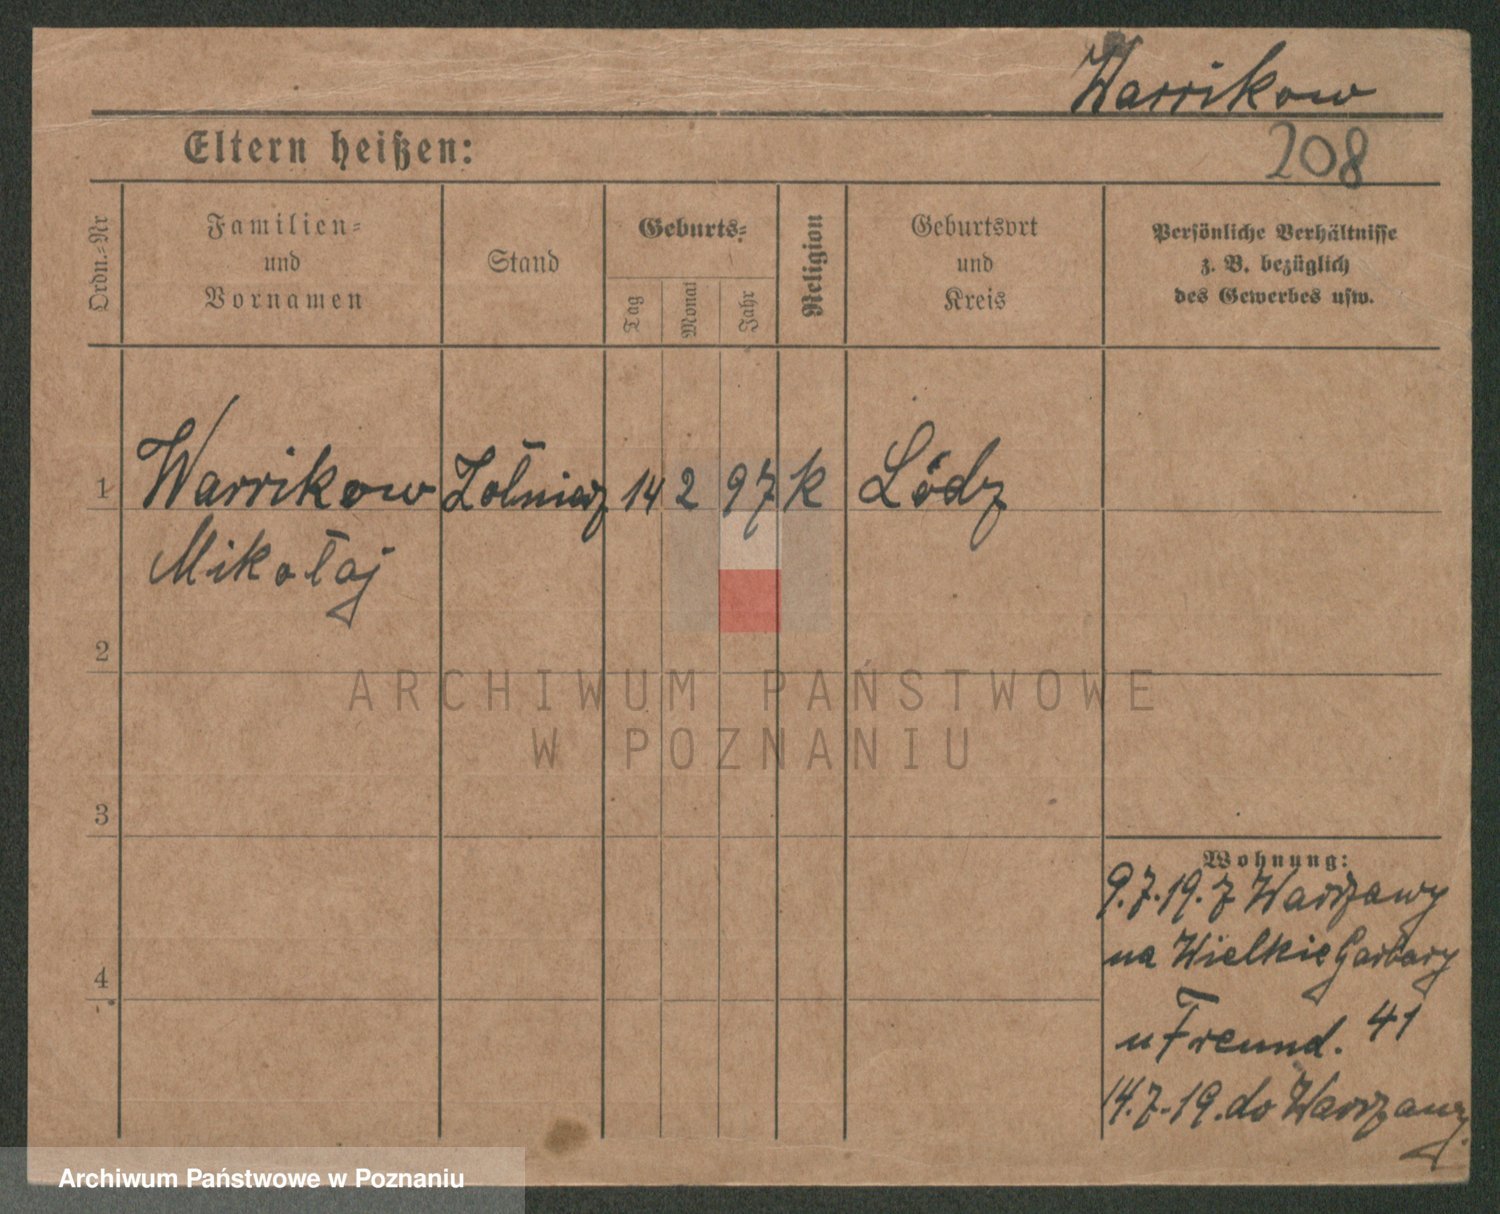 Warrikow
Eltern heißen:
208
Ordn.-Nr
Familien-
und
Vornamen
Stand
Geburts-
Tag
Monat
Jahr
Religion
Geburtsort
und
Kreis
Persönliche Verhältnisse
z. B. bezüglich
des Gewerbes usw.
1 Warrikow Żołnierz 14 2 97 k Łódz
Mikołaj
2
3
4
Wohnung:
9.7.19. z Warszawy
na Wielkie Garbary
u Freund. 41
14.7.-19. do Warszawy
ARCHIWUM PAŃSTWOWE
W POZNANIU
Archiwum Państwowe w Poznaniu